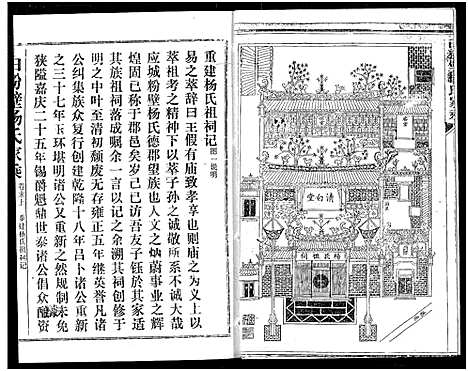 清白堂
楊氏祖祠
重建杨氏祖祠记
易之萃辞曰王假有庙致孝享也则庙之为义又以
萃祖考之精神下以萃子孙之诚敬所系不诚大哉
应城粉壁杨氏德郡望族也人文之炳蔚事业之辉
煌固已称于郡邑矣岁己巳访吾友子钰于其家适
其族祖祠落成嘱余一言以记之余溯其祠创修于
明之中叶至清初颓废无存雍正五年继英誉凡诸
公纠集族众复行创建乾隆十八年吕卜诸公重新
之三十七年玉环堪明诸公又重新之然规制未免
狭隘嘉庆二十五年锡爵魁鼎世泰诸公倡众醵资
白粉壁杨氏家乘
重建杨氏祖祠记